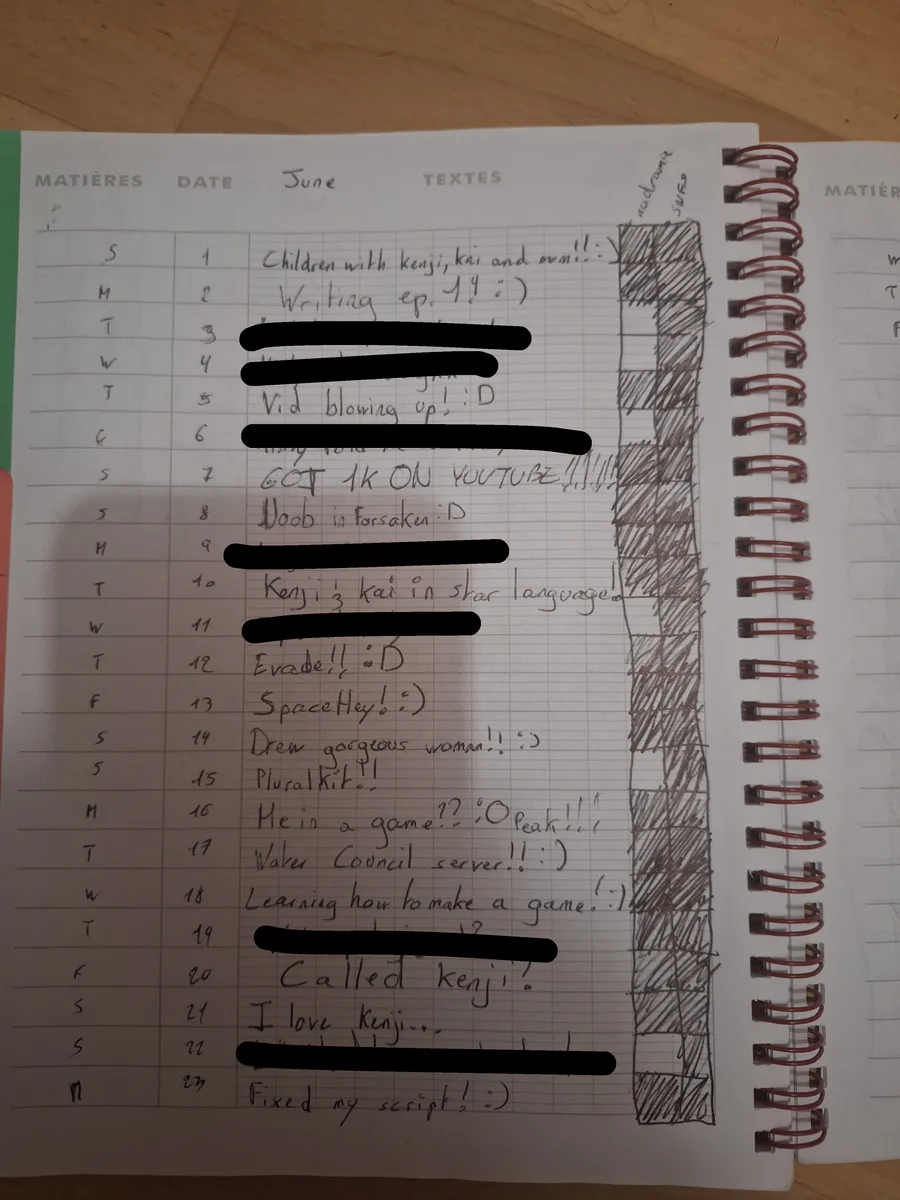 MATIÈRES DATE June TEXTES no drama
S 1 Children with kenji, kai and mm!! :)
M 2 Writing ep. 14! :)
T 3
W 4
T 5 Vid blowing up! :D
F 6
S 7 GOT 1K ON YOUTUBE!!!!!!
S 8 Noob in Forsaken :D
M 9
T 10 Kenji & kai in star language!
W 11
T 12 Evade!! :D
F 13 SpaceHey! :)
S 14 Drew gorgeous woman!! :)
S 15 Pluralkit!!
M 16 Me in a game?? :O Peak!!!
T 17 Water Council server!! :)
W 18 Learning how to make a game! :)
T 19
F 20 Called kenji!
S 21 I love kenji...
S 22
M 23 Fixed my script! :)
MATIÈR
W
T
F